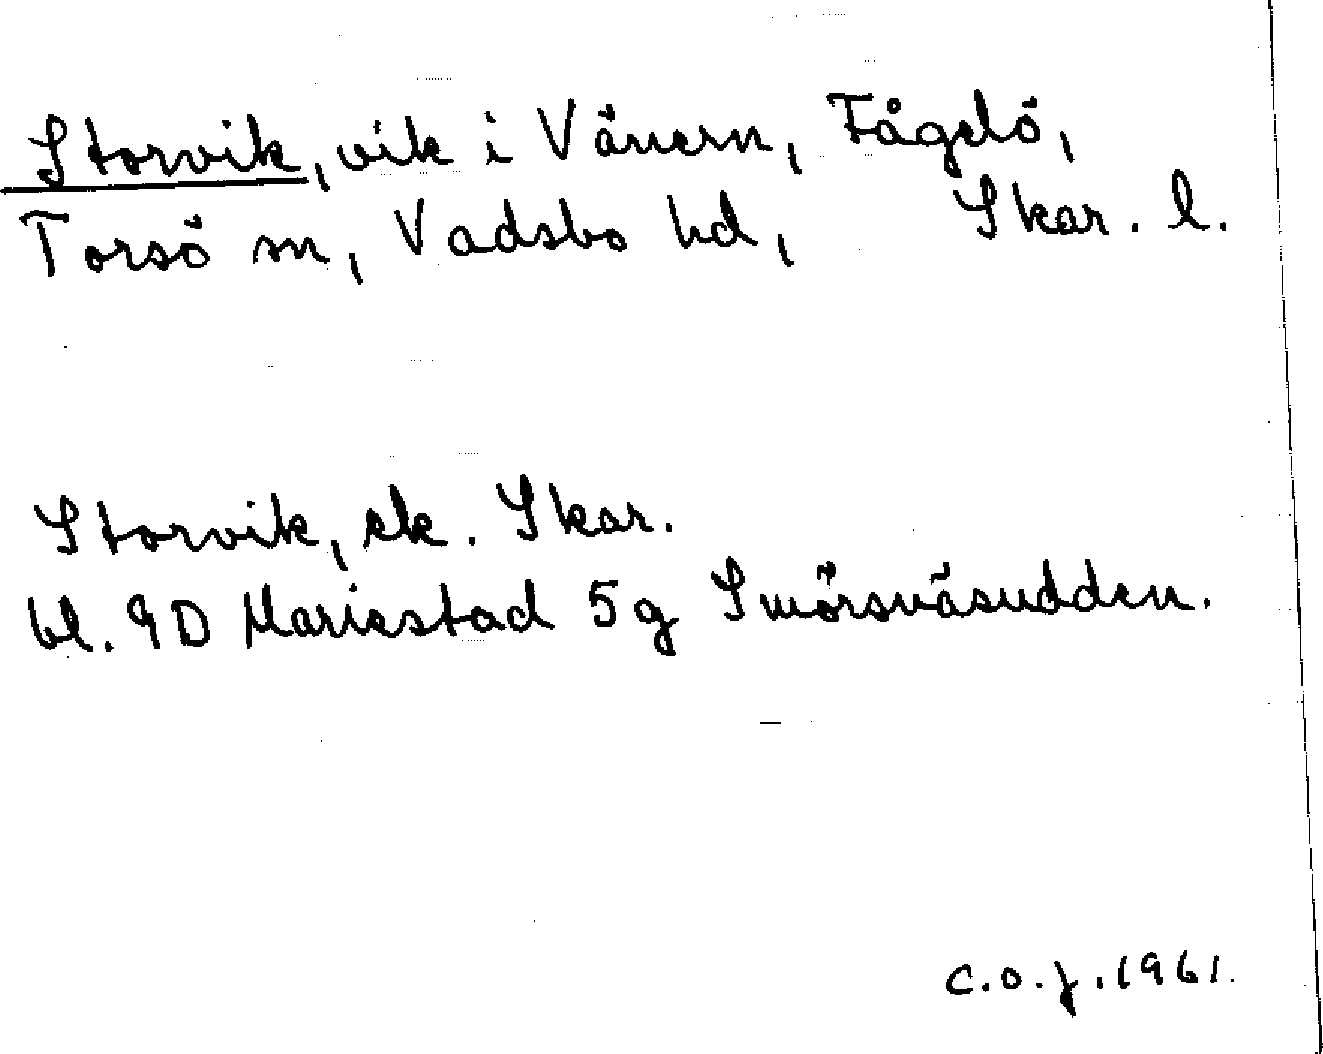 Storvik, vik i Vänern, Fågelö,
Torsö sn, Vadsbo hd, Skar. l.
Storvik, ek. Skar.
bl. 9D Mariestad 5g Smörsnäsudden.
C.O.J. 1961.